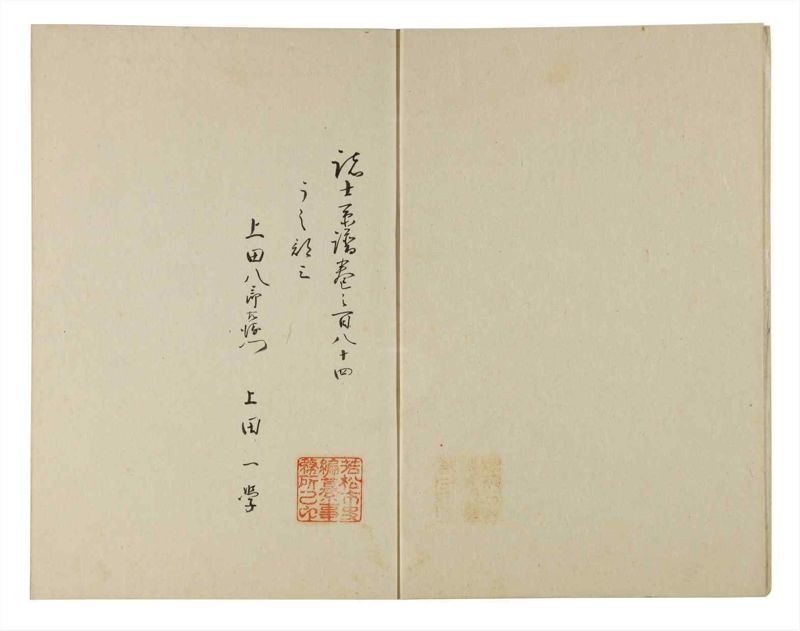 諸士系譜巻之百八十四
う之部三
上田八郎左衛門　上田一学
若松市史
編纂事
務所之印